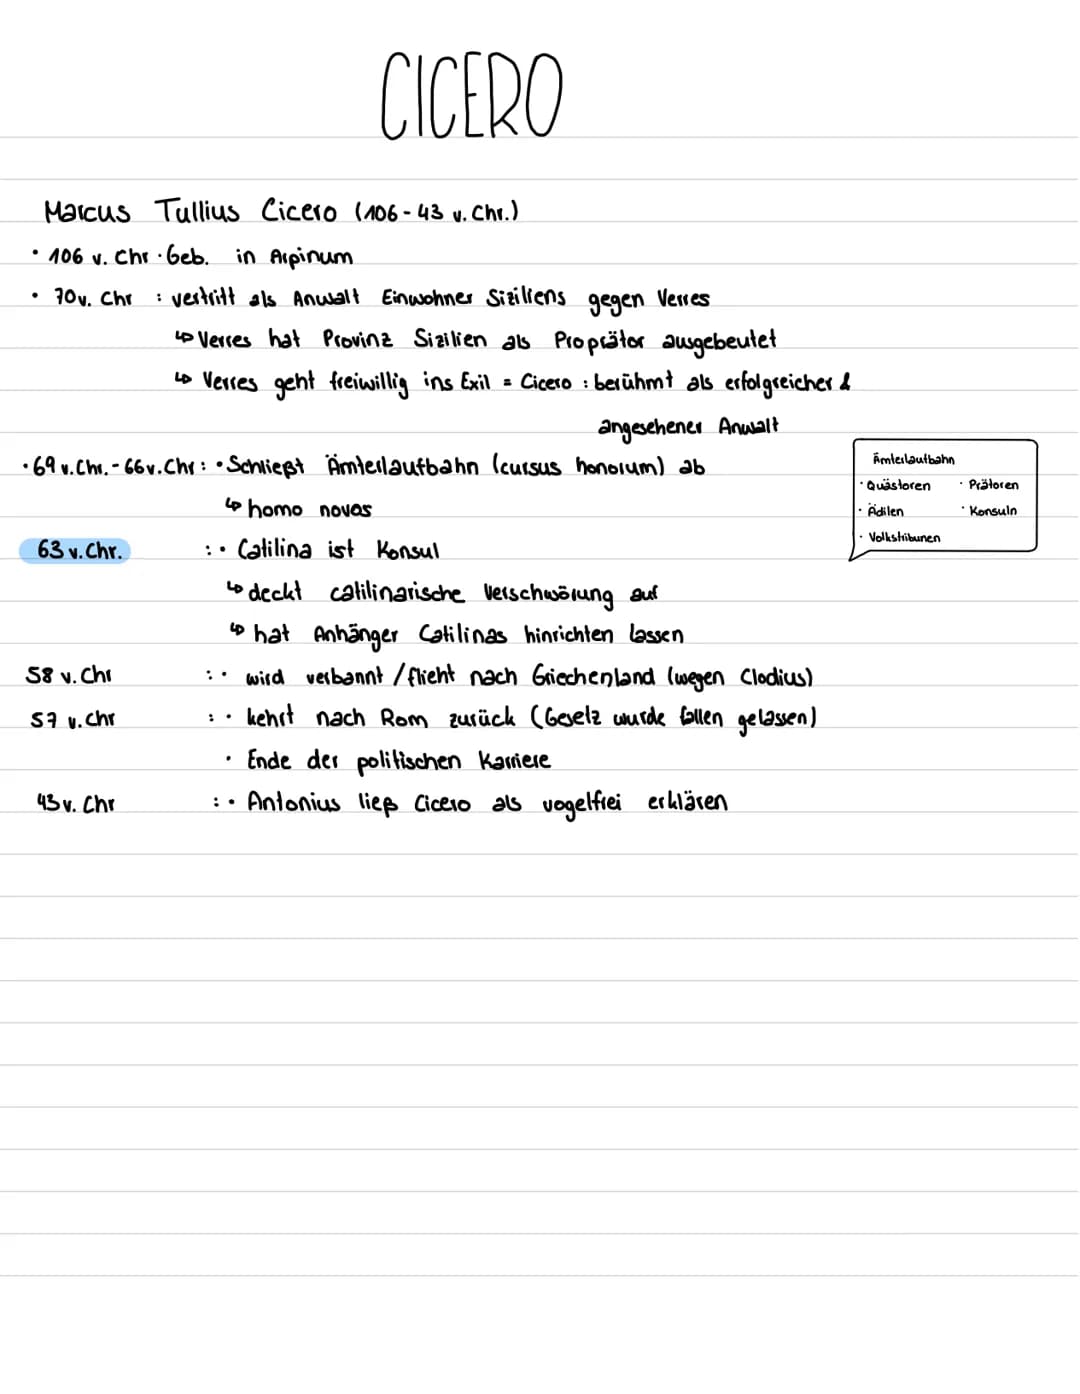 CICERO
Marcus Tullius Cicero (106-43 v. Chr.)
· 106 v. Chr · Geb. in Arpinum
· 70 v. Chr : vertritt als Anwalt Einwohner Siziliens gegen Verres
↳ Verres hat Provinz Sizilien als Proprätor ausgebeutet
↳ Verres geht freiwillig ins Exil = Cicero : berühmt als erfolgreicher &
angesehener Anwalt
· 69 v. Chr. - 66 v. Chr : · Schließt Ämterlaufbahn (cursus honorum) ab
↳ homo novos
Ämterlaufbahn
· Quästoren · Prätoren
· Ädilen · Konsuln
· Volkstribunen
63 v. Chr. : · Catilina ist Konsul
↳ deckt catilinarische Verschwörung auf
↳ hat Anhänger Catilinas hinrichten lassen
58 v. Chr : · wird verbannt / flieht nach Griechenland (wegen Clodius)
57 v. Chr : · kehrt nach Rom zurück (Gesetz wurde fallen gelassen)
· Ende der politischen Karriere
43 v. Chr : · Antonius ließ Cicero als vogelfrei erklären